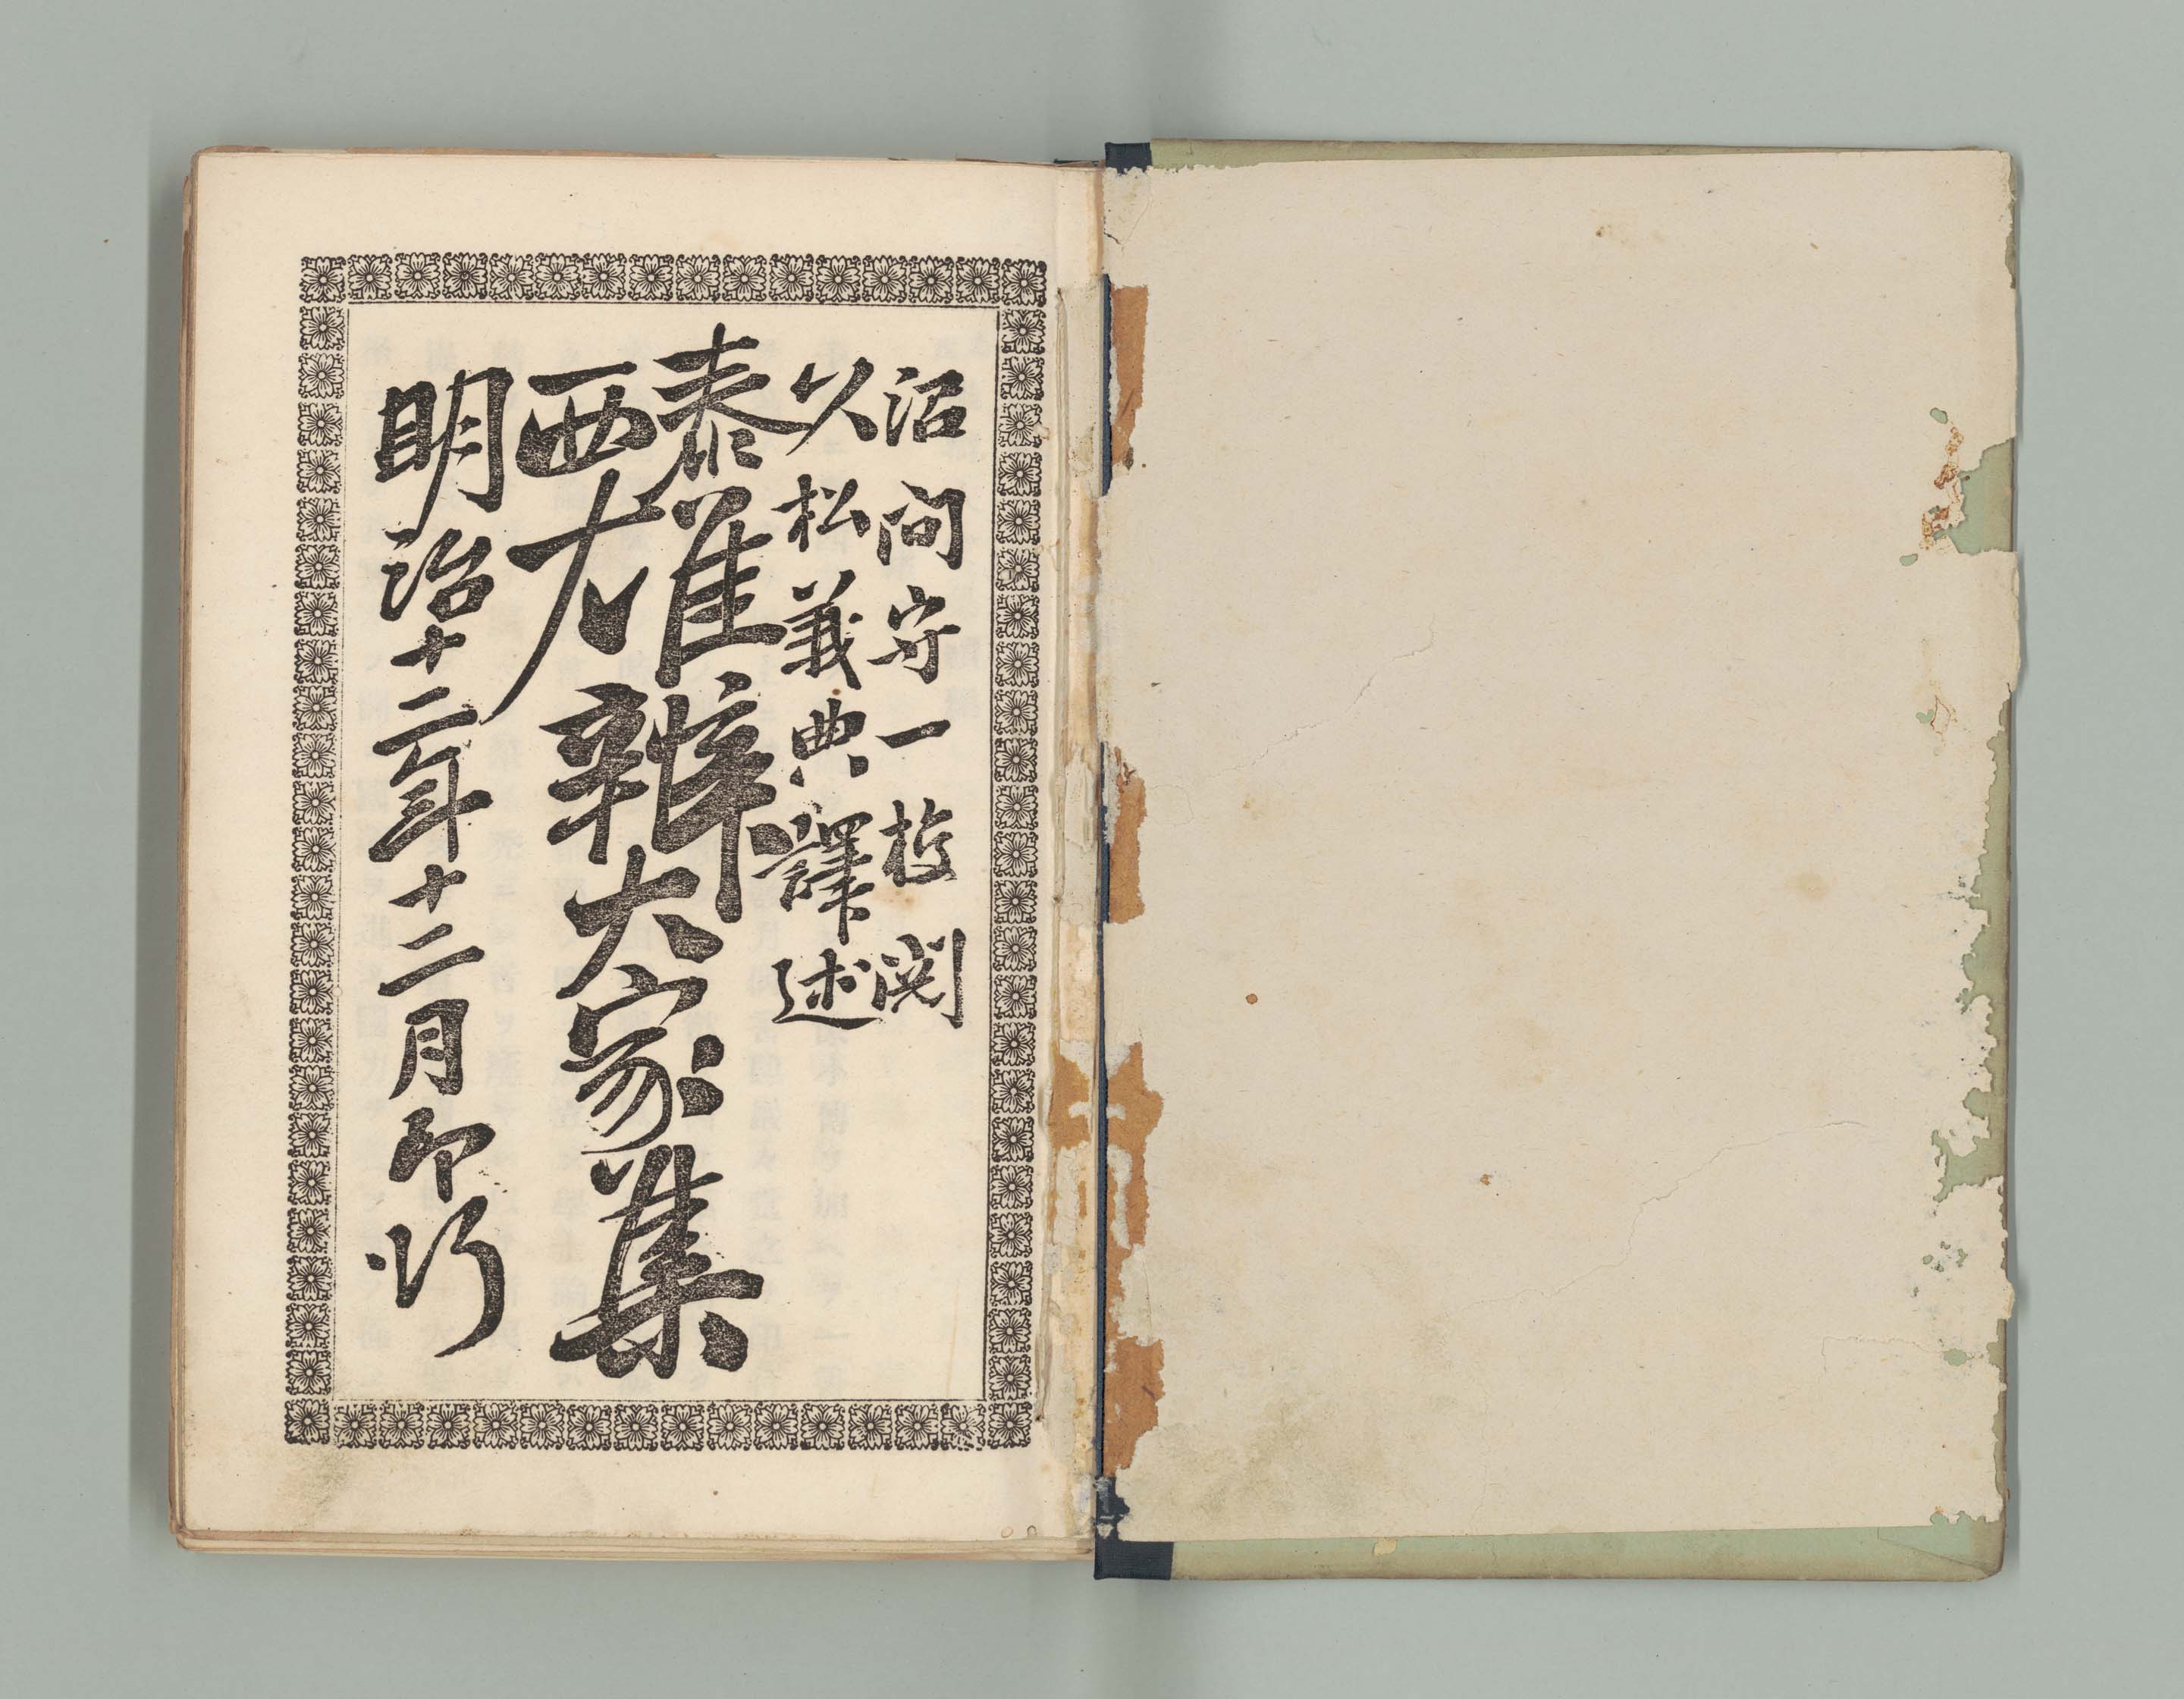 沼間守一校閲
久松義典譯述
泰西
雄辯大家集
明治十二年十二月印行